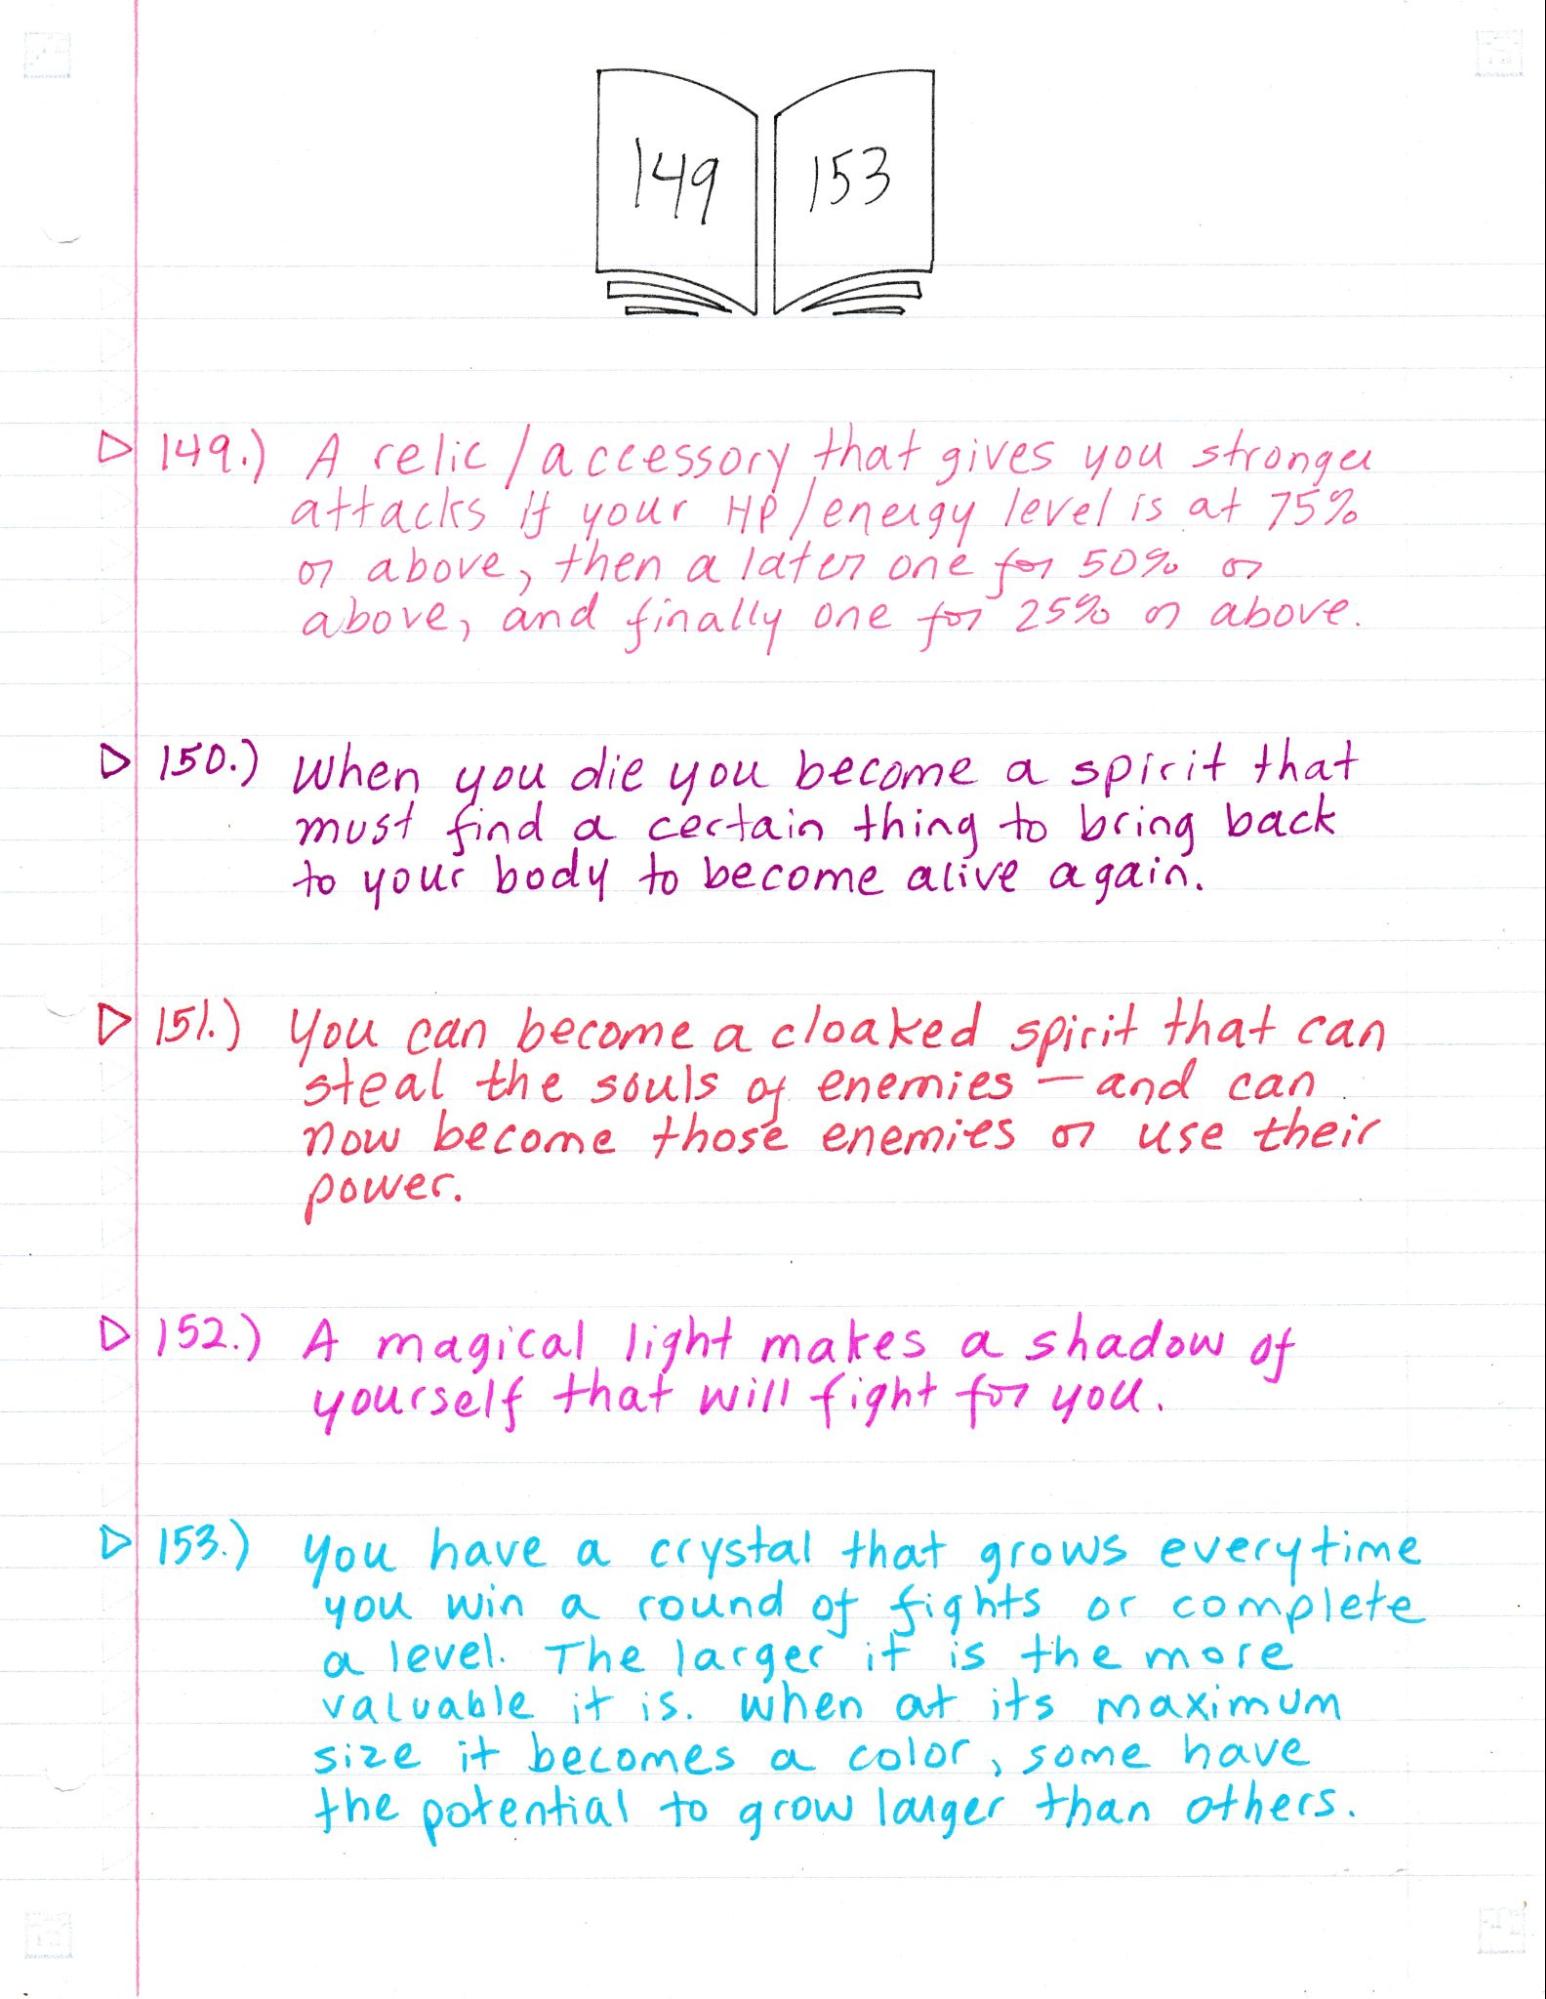 149 153
▷ 149.) A relic/accessory that gives you stronger
attacks if your HP/energy level is at 75%
or above, then a later one for 50% or
above, and finally one for 25% or above.
▷ 150.) When you die you become a spirit that
must find a certain thing to bring back
to your body to become alive again.
▷ 151.) You can become a cloaked spirit that can
steal the souls of enemies — and can
now become those enemies or use their
power.
▷ 152.) A magical light makes a shadow of
yourself that will fight for you.
▷ 153.) You have a crystal that grows everytime
you win a round of fights or complete
a level. The larger it is the more
valuable it is. When at its maximum
size it becomes a color, some have
the potential to grow larger than others.